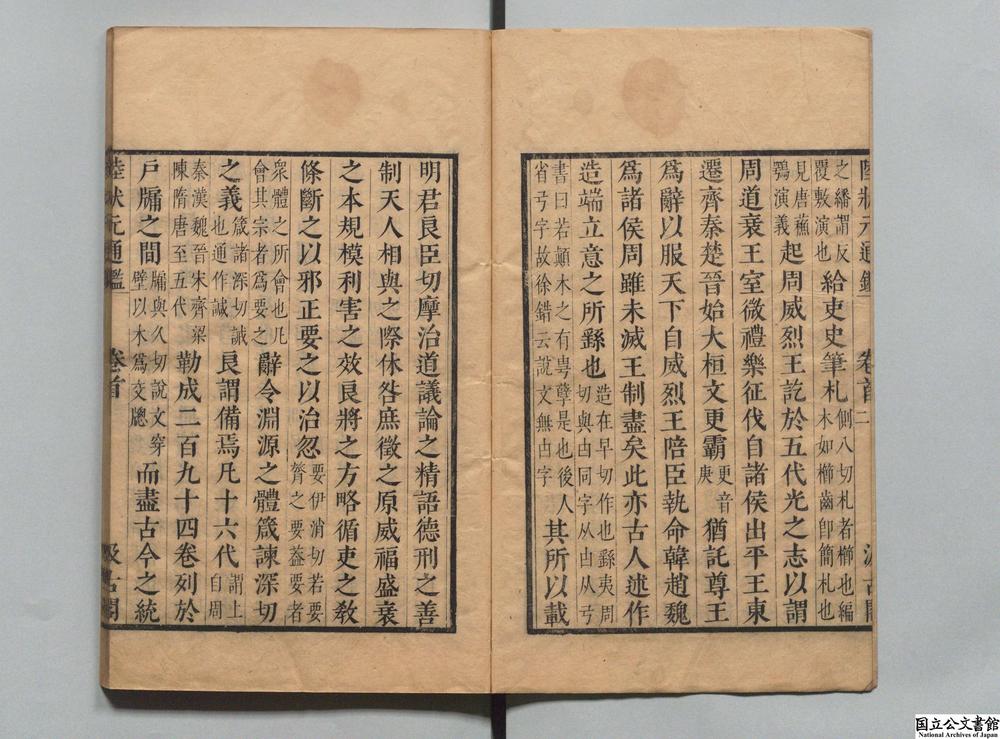 陸狀元通鑑 卷首 二 汲古閣
之繙謂反覆敷演也見唐蕉鶚演義起周威烈王訖於五代光之志以謂
給吏史筆札側八切札者櫛也編木如櫛齒卽簡札也
周道衰王室微禮樂征伐自諸侯出平王東
遷齊秦楚晉始大桓文更霸更音庚猶託尊王
爲辭以服天下自威烈王陪臣執命韓趙魏
爲諸侯周雖未滅王制盡矣此亦古人述作
造端立意之所繇也造在早切作也繇夷周切與由同字从由从丂
書曰若顚木之有甹孽是也後人省丂字故徐錯云說文無由字其所以載
明君良臣切摩治道議論之精語德刑之善
制天人相與之際休咎庶徵之原威福盛衰
之本規模利害之效良將之方略循吏之敎
條斷之以邪正要之以治忽要伊消切若要膂之要葢要者
衆體之所會也凡會其宗者爲要之辭令淵源之體箴諫深切
之義箴諸深切誡也通作諴良謂備焉凡十六代謂上自周
秦漢魏晉宋齊梁陳隋唐至五代勒成二百九十四卷列於
戶牖之間牖與久切說文穿壁以木爲交牎而盡古今之統
陸狀元通鑑 卷首 汲古閣
国立公文書館
National Archives of Japan